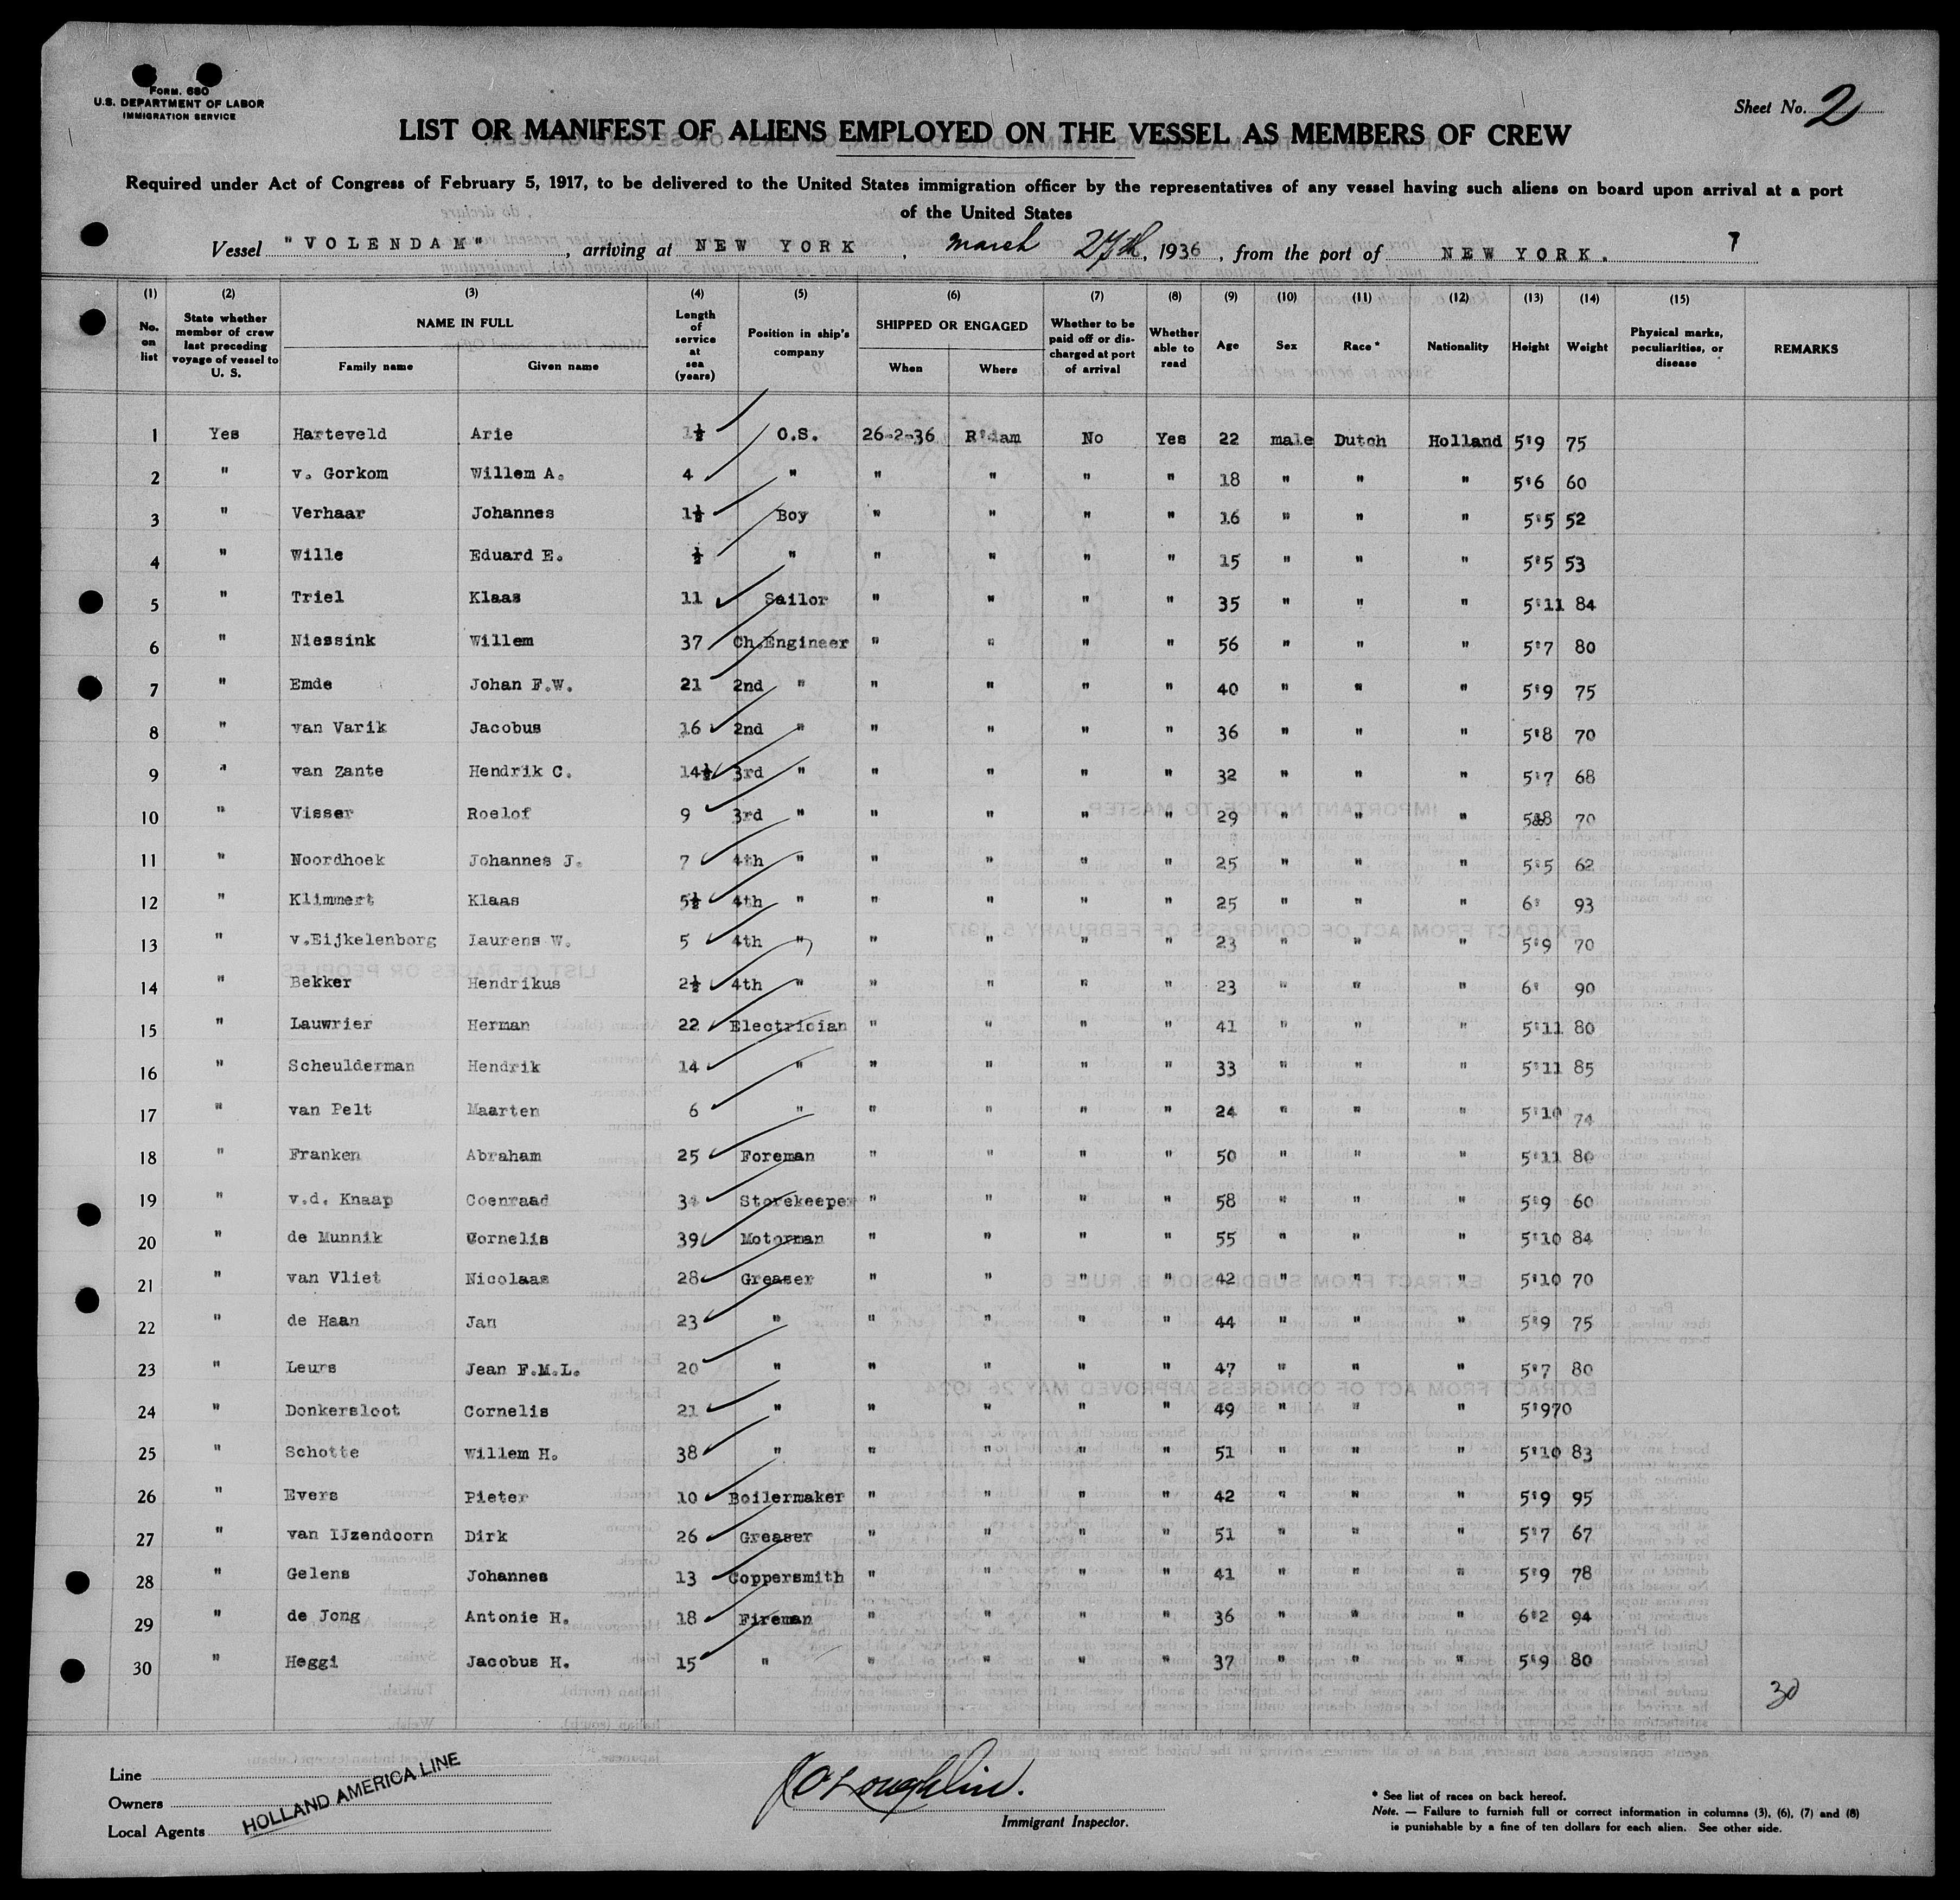 FORM. 680
U.S. DEPARTMENT OF LABOR
IMMIGRATION SERVICE
Sheet No. 2
LIST OR MANIFEST OF ALIENS EMPLOYED ON THE VESSEL AS MEMBERS OF CREW
Required under Act of Congress of February 5, 1917, to be delivered to the United States immigration officer by the representatives of any vessel having such aliens on board upon arrival at a port
of the United States
Vessel "VOLENDAM", arriving at NEW YORK, March 27th, 1936, from the port of NEW YORK. 7
(1) (2) (3) (4) (5) (6) (7) (8) (9) (10) (11) (12) (13) (14) (15)
No. on list | State whether member of crew last preceding voyage of vessel to U. S. | NAME IN FULL | Family name | Given name | Length of service at sea (years) | Position in ship's company | SHIPPED OR ENGAGED | When | Where | Whether to be paid off or discharged at port of arrival | Whether able to read | Age | Sex | Race * | Nationality | Height | Weight | Physical marks, peculiarities, or disease | REMARKS
1 Yes Harteveld Arie 1½ O.S. 26-2-36 R'dam No Yes 22 male Dutch Holland 5'9 75
2 " v. Gorkom Willem A. 4 " " " " " 18 " " " 5'6 60
3 " Verhaar Johannes 1½ Boy " " " " 16 " " " 5'5 52
4 " Wille Eduard E. ½ " " " " " 15 " " " 5'5 53
5 " Triel Klaas 11 Sailor " " " " 35 " " " 5'11 84
6 " Niessink Willem 37 Ch.Engineer " " " " 56 " " " 5'7 80
7 " Emde Johan F.W. 21 2nd " " " " " 40 " " " 5'9 75
8 " van Varik Jacobus 16 2nd " " " " " 36 " " " 5'8 70
9 " van Zante Hendrik C. 14½ 3rd " " " " " 32 " " " 5'7 68
10 " Visser Roelof 9 3rd " " " " " 29 " " " 5'8 70
11 " Noordhoek Johannes J. 7 4th " " " " " 25 " " " 5'5 62
12 " Klimmert Klaas 5½ 4th " " " " " 25 " " " 6' 93
13 " v.Eijkelenborg Laurens W. 5 4th " " " " " 23 " " " 5'9 70
14 " Bekker Hendrikus 2½ 4th " " " " " 23 " " " 6' 90
15 " Lauwrier Herman 22 Electrician " " " " 41 " " " 5'11 80
16 " Scheulderman Hendrik 14 " " " " " 33 " " " 5'11 85
17 " van Pelt Maarten 6 " " " " " 24 " " " 5'10 74
18 " Franken Abraham 25 Foreman " " " " 50 " " " 5'11 80
19 " v.d. Knaap Coenraad Storekeeper " " " " 58 " " " 5'9 60
20 " de Munnik Cornelis 39 Motorman " " " " 55 " " " 5'10 84
21 " van Vliet Nicolaas 28 Greaser " " " " 42 " " " 5'10 70
22 " de Haan Jan 23 " " " " " 44 " " " 5'9 75
23 " Leurs Jean F.M.L. 20 " " " " " 47 " " " 5'7 80
24 " Donkersloot Cornelis 21 " " " " " 49 " " " 5'970
25 " Schotte Willem H. 38 " " " " " 51 " " " 5'10 83
26 " Evers Pieter 10 Boilermaker " " " " 42 " " " 5'9 95
27 " van IJzendoorn Dirk 26 Greaser " " " " 51 " " " 5'7 67
28 " Gelens Johannes 13 Coppersmith " " " " 41 " " " 5'9 78
29 " de Jong Antonie H. 18 Fireman " " " " 36 " " " 6'2 94
30 " Heggi Jacobus H. 15 " " " " " 37 " " " 5'9 80
30
Line
Owners
Local Agents
HOLLAND AMERICA LINE
J O'Loughlin.
Immigrant Inspector.
* See list of races on back hereof.
Note. — Failure to furnish full or correct information in columns (3), (6), (7) and (8)
is punishable by a fine of ten dollars for each alien. See other side.